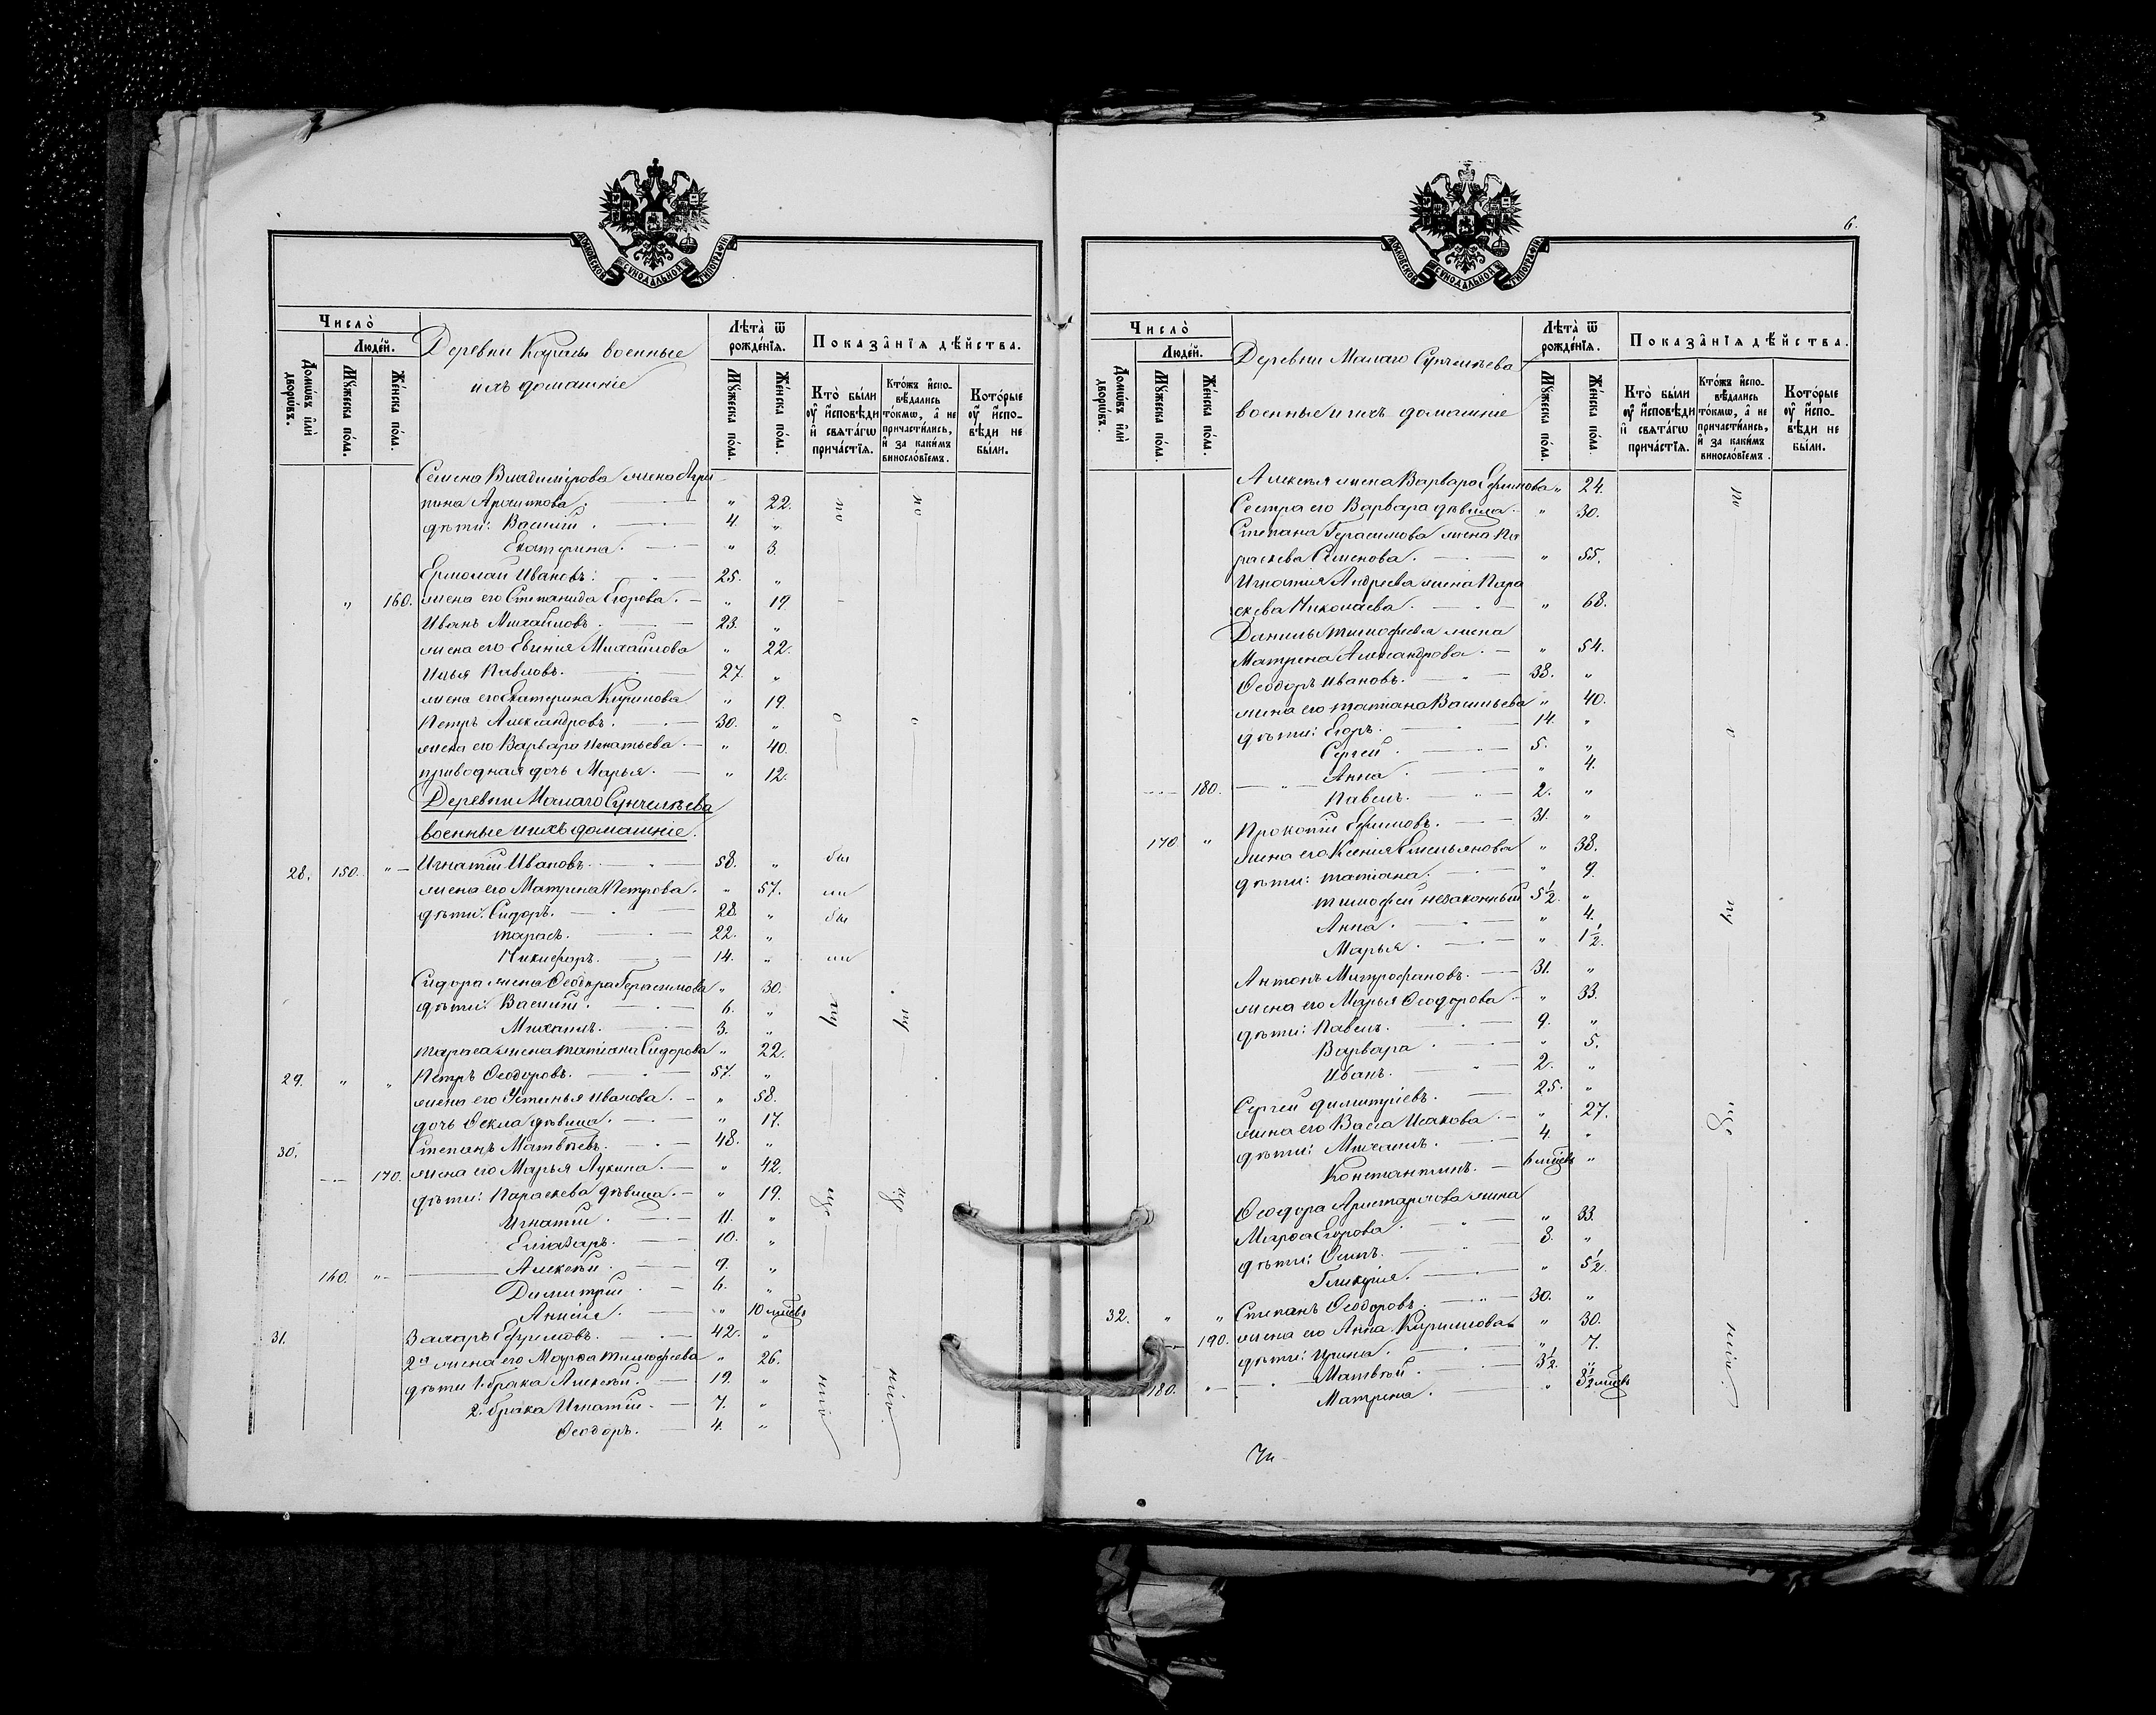 МОСКОВСКОЙ СУНОДАЛЬНОЙ ТИПОГРАФІИ
Число̀
Людей.
Домѡвъ или дворѡвъ.
Мꙋжеска пола.
Женска пола.
Деревни военные
ихъ домашніе
Лѣта ѿ рожденїѧ.
Мꙋжеска пола.
Женска пола.
Показанїѧ дѣйства.
Кто были оу исповѣди и свѧтагѡ причастїѧ.
Ктожъ исповѣдались токмѡ, а не причастились, и за какимъ винословїемъ.
Которые оу исповѣди не были.
Семена Владимірова жена Агри
пина " 22.
дѣти: Василій. 4. "
Екатерина. " 3.
Ермолай Ивановъ. 25. "
" 160. жена его Степанида Егорова. " 19.
Иванъ Михайловъ. 23. "
жена его Евгенія Михайлова " 22.
Илья Павловъ. 27. "
жена его Екатерина Кирилова " 19.
Петръ Александровъ. 30. "
жена его Варвара Игнатьева. " 40.
приводная дочь Марья. " 12.
Деревни Малаго Сунчелѣева
военные и ихъ домашніе.
28. 150. " Игнатій Ивановъ. 58. " бы
жена его Матрена Петрова. " 57. ли
дѣти: Сидоръ. 28. " бы
Тарасъ. 22. "
Никифоръ. 14. " ли
Сидора жена Ѳеодора Герасимова " 30.
дѣти: Василій. 6. "
Михаилъ. 3. "
Тараса жена Татіана Сидорова " 22.
29. " " Петръ Ѳеодоровъ. 57. "
жена его Устинья Иванова. " 58.
дочь Ѳекла дѣвица. " 17.
30. Степанъ Матвѣевъ. 48. "
170. жена его Марья Лукина. " 42.
дѣти: Параскева дѣвица. " 19.
Игнатій. 11. "
Елиазаръ. 10. "
160. " Алексѣй. 9. "
Димитрій. 6. "
Анисія. " 10 мѣсъ
31. Захаръ Ефимовъ. 42. "
2я жена его Марѳа Тимофеева " 26.
дѣти 1. брака Алексѣй. 19. "
2. брака Игнатій. 7. "
Ѳеодоръ. 4. "
6.
МОСКОВСКОЙ СУНОДАЛЬНОЙ ТИПОГРАФІИ
Число̀
Людей.
Домѡвъ или дворѡвъ.
Мꙋжеска пола.
Женска пола.
Деревни Малаго Сунчелѣева
военные и ихъ домашніе
Лѣта ѿ рожденїѧ.
Мꙋжеска пола.
Женска пола.
Показанїѧ дѣйства.
Кто были оу исповѣди и свѧтагѡ причастїѧ.
Ктожъ исповѣдались токмѡ, а не причастились, и за какимъ винословїемъ.
Которые оу исповѣди не были.
Алексѣя жена Варвара Ефимова " 24.
Сестра его Варвара дѣвица. " 30.
Степана Герасимова жена Па
раскева Семенова. " 55.
Игнатія Андреева жена Пара
скева Николаева. " 68.
Данилы Тимофеева жена
Матрена Александрова. " 54.
Ѳеодоръ Ивановъ. 38. "
жена его Татіана Васильева " 40.
дѣти: Егоръ. 14. "
Сергей. 5. "
Анна. " 4.
180. Павелъ. 2. "
Прокопій Ефимовъ. 31. "
170. " жена его Ксенія Емельянова " 38.
дѣти: Татіана. " 9.
Тимофей незаконный 5½. "
Анна. " 4.
Марья. " 1½.
Антонъ Митрофановъ. 31. "
жена его Марья Ѳеодорова " 33.
дѣти: Павелъ. 9. "
Варвара. " 5.
Иванъ. 2. "
Сергей Димитріевъ. 25. "
жена его Васса Исакова. " 27.
дѣти: Михаилъ. 4. "
Константинъ. 6 мѣсъ "
Ѳеодора Аристархова жена
Марѳа Егорова. " 33.
дѣти: Осипъ. 8. "
Гликерія. " 5½.
32. " " Степанъ Ѳеодоровъ. 30. "
190. жена его Анна Кирилова " 30.
дѣти: Ирина. " 7.
180. " Матвѣй. 3½. "
Матрена. " 3½ мѣсъ